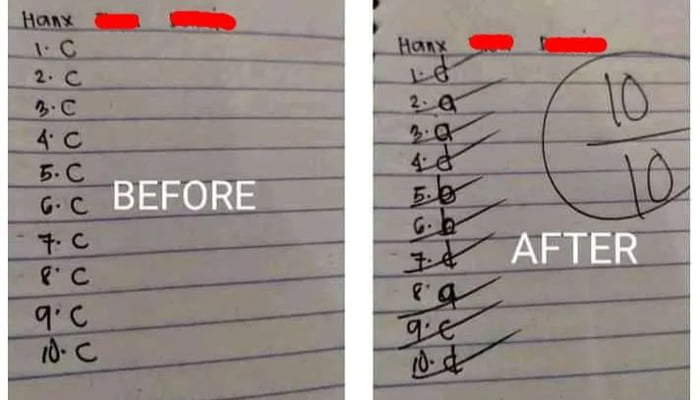 Hanx
1. C
2. C
3. C
4. C
5. C
6. C
7. C
8. C
9. C
10. C
BEFORE
Hanx
1. d
2. a
3. a
4. d
5. b
6. b
7. d
8. a
9. c
10. d
10
10
AFTER